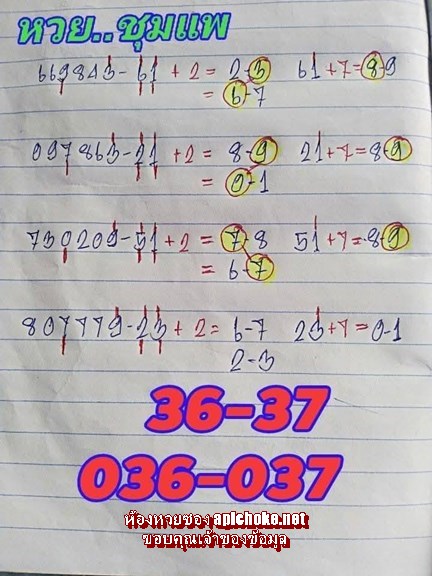 หวย..ชุมแพ
669843-61+2=2-3 61+7=8-9
=6-7
097863-21+2=8-9 21+7=8-9
=0-1
730209-51+2=7-8 51+7=8-9
=6-7
807779-23+2=6-7 23+7=0-1
2-3
36-37
036-037
ห้องหวยซอง aplchoke.net
ขอบคุณเจ้าของข้อมูล